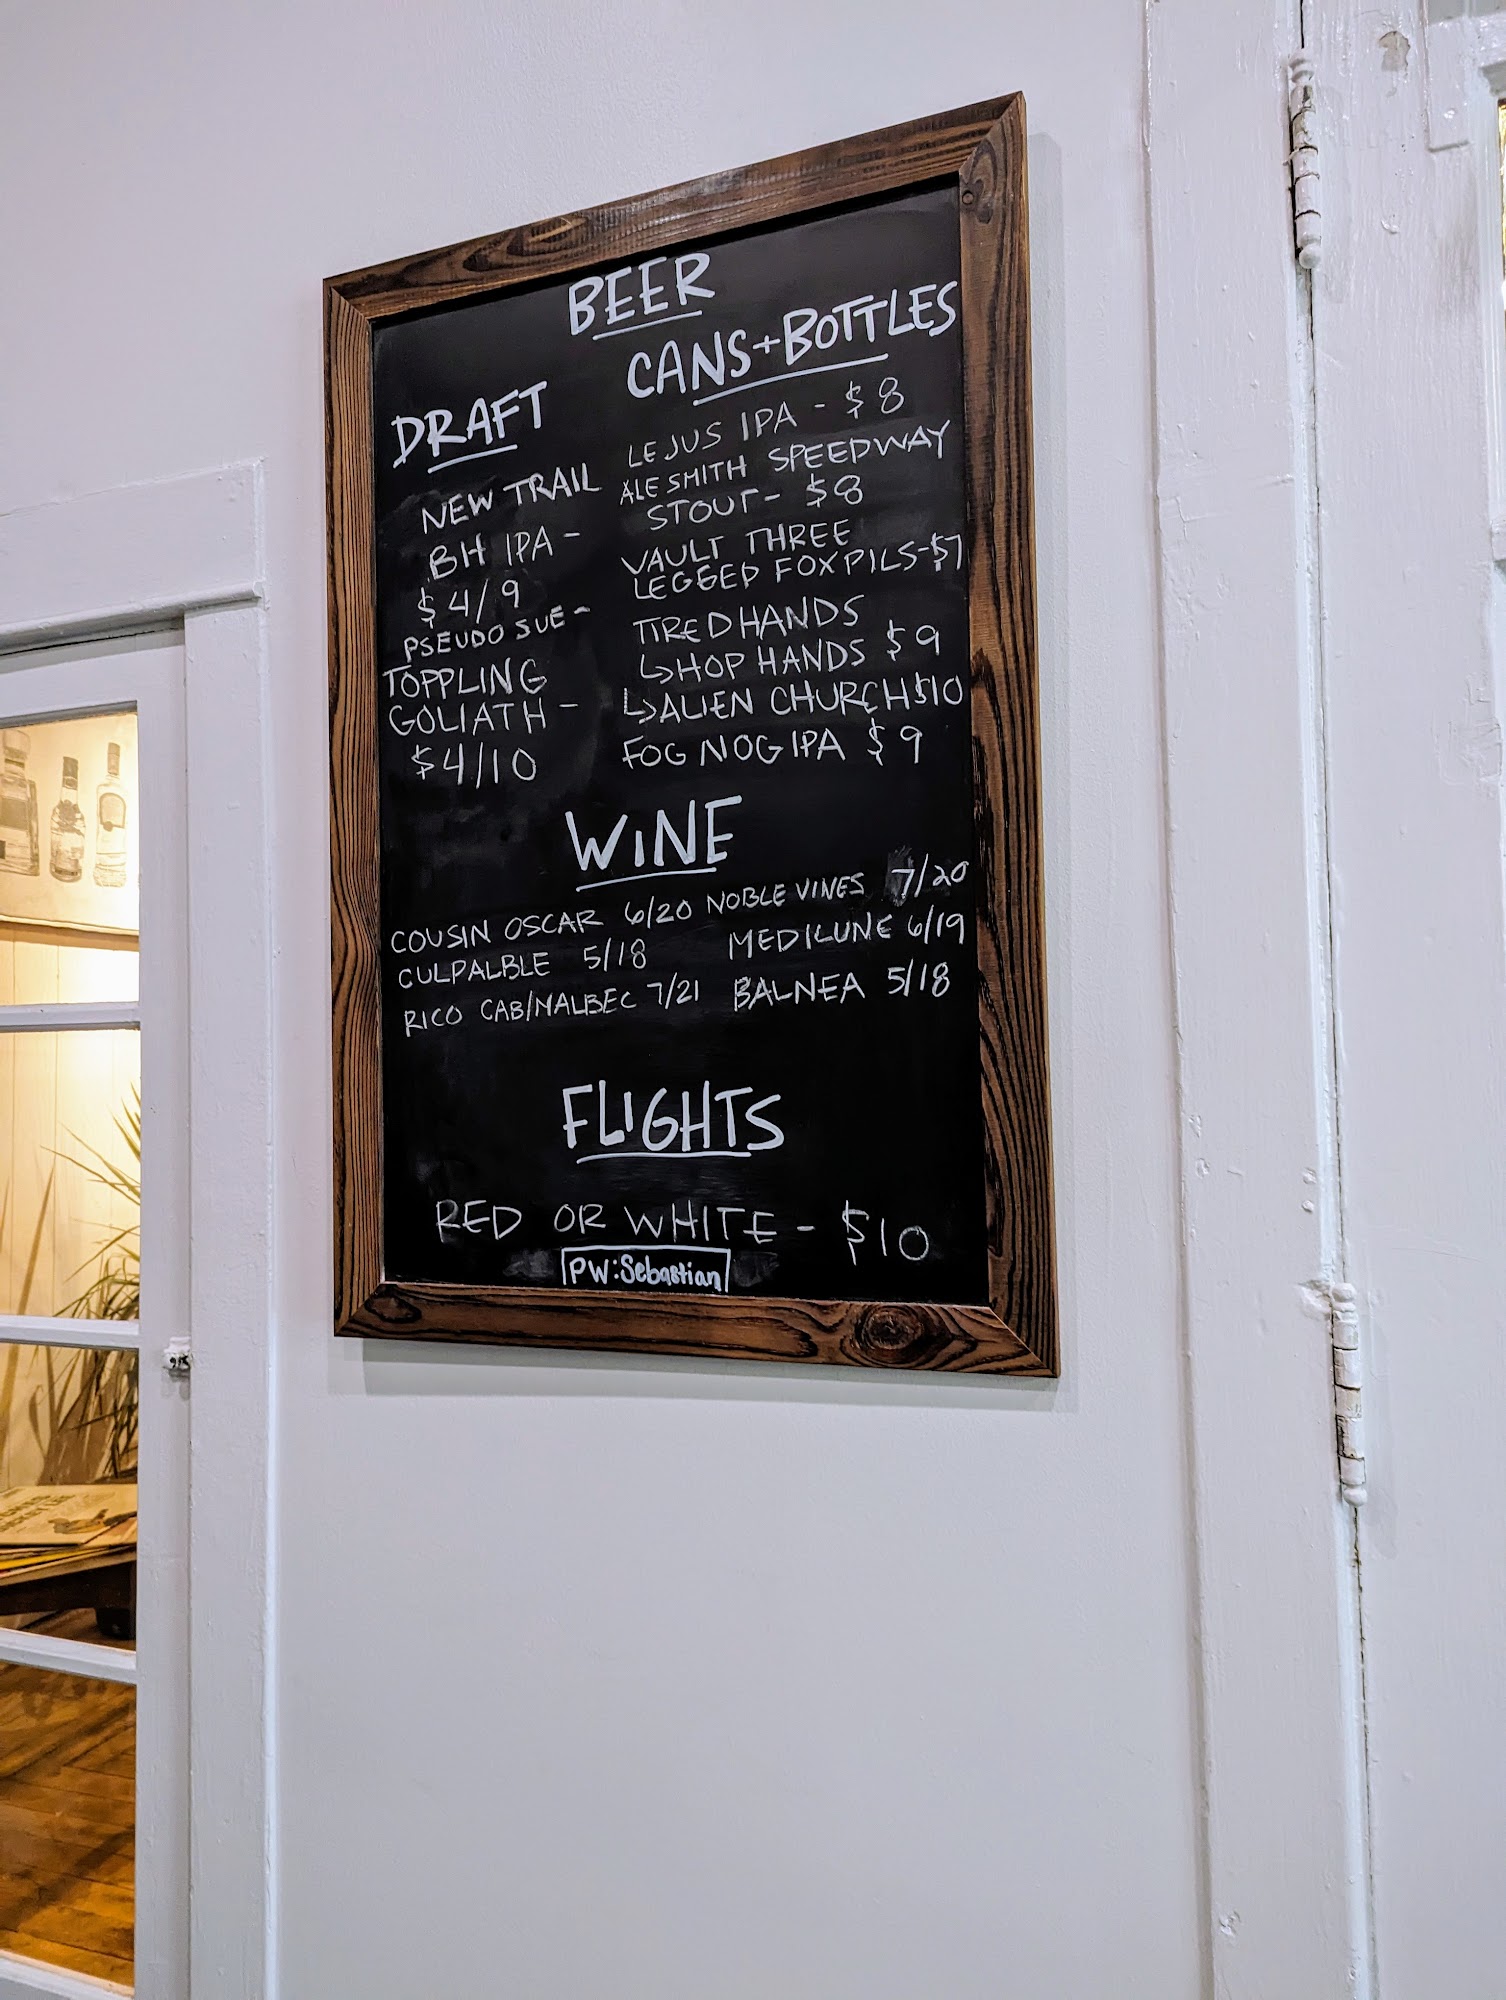 BEER
DRAFT
NEW TRAIL
BH IPA -
$4/9
PSEUDO SUE -
TOPPLING
GOLIATH -
$4/10
CANS + BOTTLES
LEJUS IPA - $8
ALESMITH SPEEDWAY
STOUT - $8
VAULT THREE
LEGGED FOX PILS - $7
TIRED HANDS
↳ HOP HANDS $9
↳ ALIEN CHURCH $10
FOG NOG IPA $9
WINE
COUSIN OSCAR 6/20 NOBLE VINES 7/20
CULPALBLE 5/18 MEDILUNE 6/19
RICO CAB/MALBEC 7/21 BALNEA 5/18
FLIGHTS
RED OR WHITE - $10
PW: Sebastian